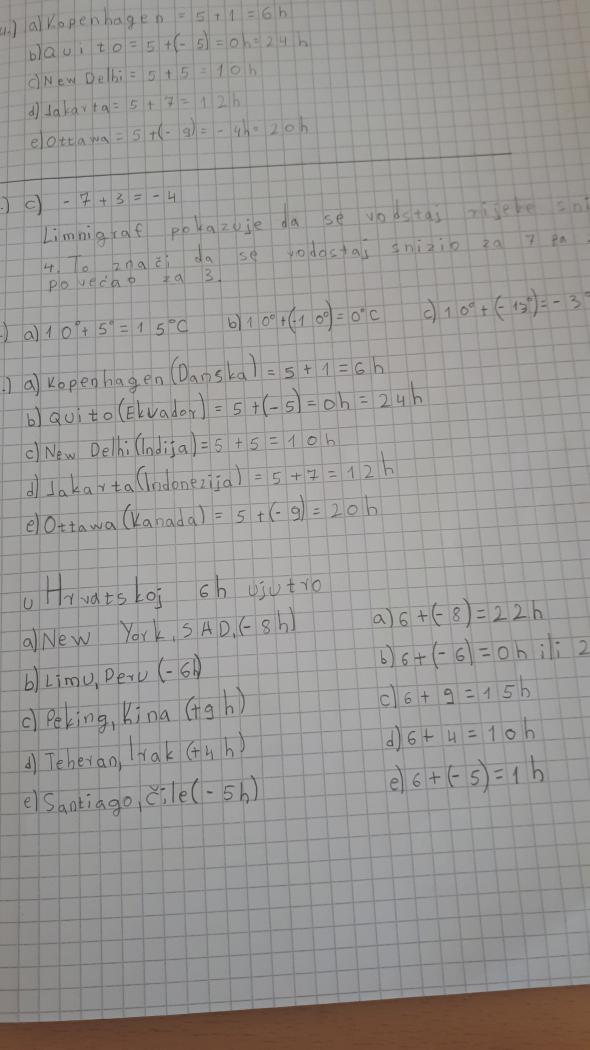 4.) a) Kopenhagen = 5 + 1 = 6h
b) Quito = 5 + (- 5) = 0h = 24h
c) New Delhi = 5 + 5 = 10h
d) Jakarta = 5 + 7 = 12h
e) Ottawa = 5 + (- 9) = - 4h = 20h
.) c) - 7 + 3 = - 4
Limnigraf pokazuje da se vodstaj rijeke sni
4. To znači da se vodostaj snizio za 7 pa
povećao za 3.
.) a) 10° + 5° = 15°C b) 10° + (-10°) = 0°C c) 10° + (-13°) = - 3°
.) a) Kopenhagen (Danska) = 5 + 1 = 6h
b) Quito (Ekvador) = 5 + (- 5) = 0h = 24h
c) New Delhi (Indija) = 5 + 5 = 10h
d) Jakarta (Indonezija) = 5 + 7 = 12h
e) Ottawa (Kanada) = 5 + (- 9) = 20h
U Hrvatskoj 6h ujutro
a) New York, SAD, (- 8h) a) 6 + (- 8) = 22h
b) Limu, Peru (- 6h) b) 6 + (- 6) = 0h ili 2
c) Peking, Kina (+9h) c) 6 + 9 = 15h
d) Teheran, Irak (+4h) d) 6 + 4 = 10h
e) Santiago, Čile (- 5h) e) 6 + (- 5) = 1h